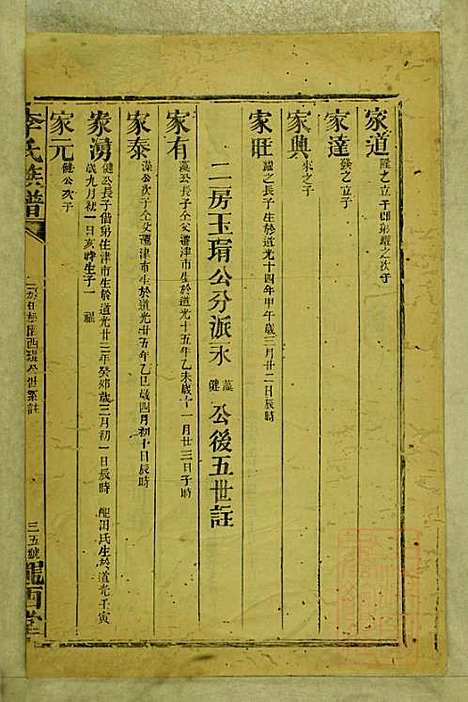 家道 隆之立子即弟耀之次子
家達 隆之立子
家典 之子
家旺 耀之長子生於道光十四年甲午歲三月廿二日辰時
二房玉琄公分派永 藻 健 公後五世註
家有 藻公長子仝父遷津市生於道光十五年乙未歲十一月廿三日子時
家泰 藻公次子仝父遷津市生於道光廿五年乙巳歲四月初十日辰時
家湧 健公長子偕弟住津市生於道光廿三年癸卯歲三月初一日辰時 配田氏生於道光壬寅
歲九月初一日亥時生子一 福
家元 健公次子
李氏族譜
三五號 隴西堂